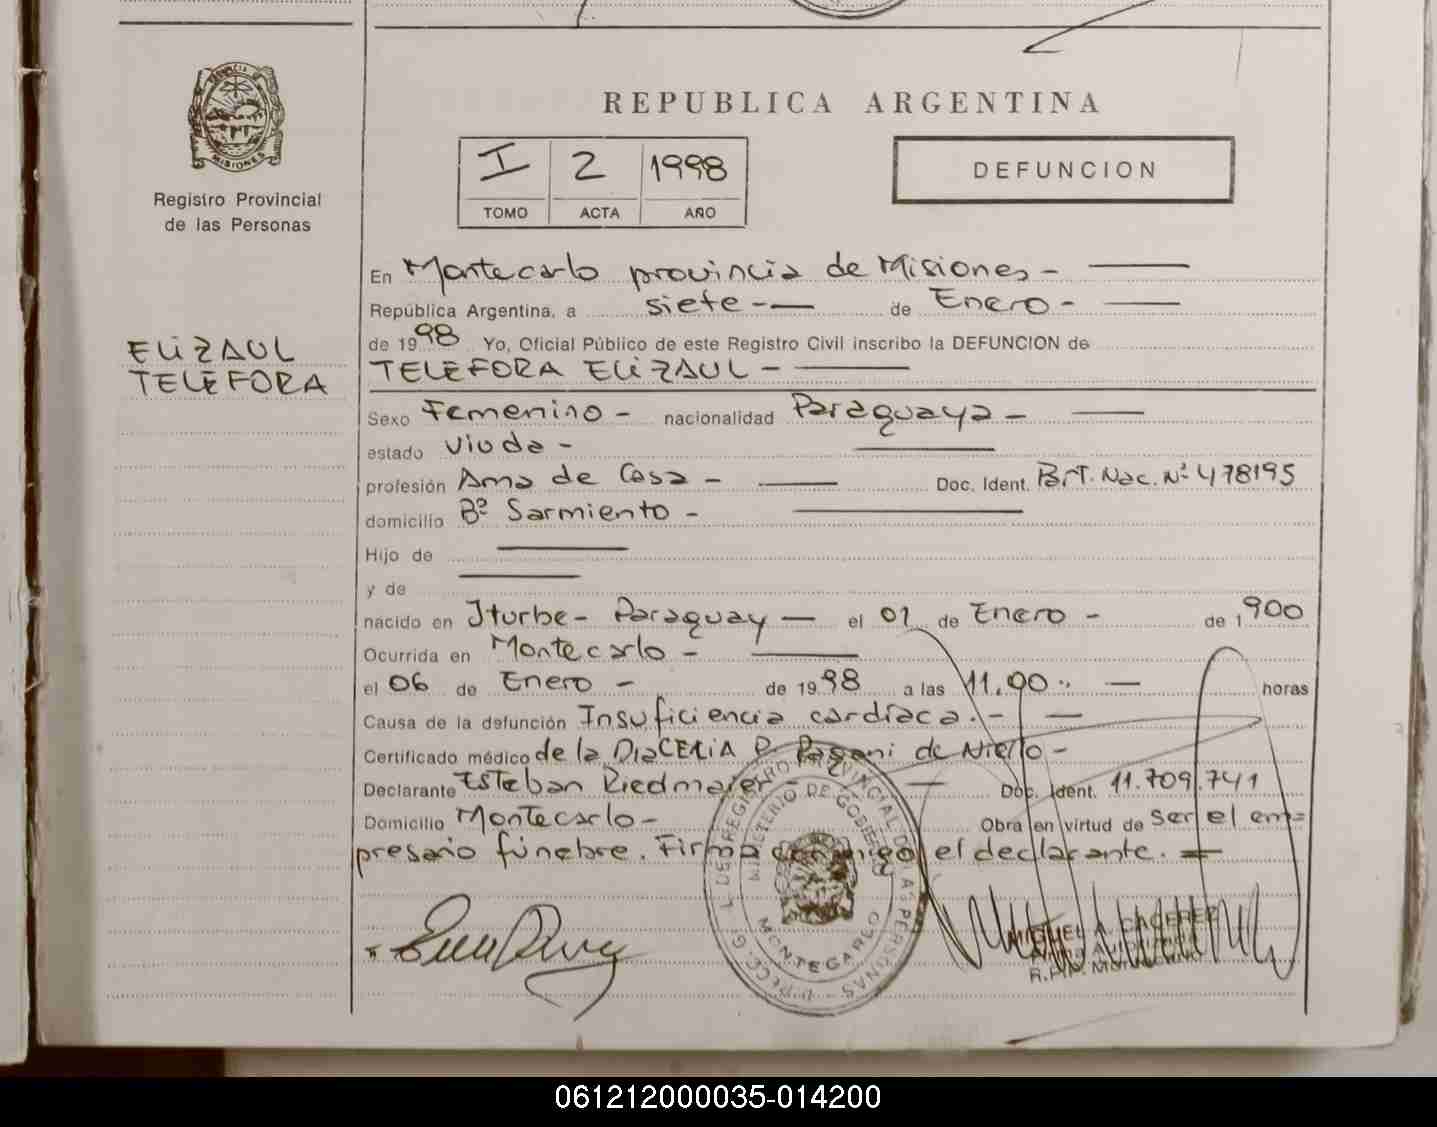 PROVINCIA DE
MISIONES
Registro Provincial
de las Personas
ELIZAUL
TELEFORA
REPUBLICA ARGENTINA
I 2 1998
TOMO ACTA AÑO
DEFUNCION
En Montecarlo provincia de Misiones -
República Argentina, a siete - de Enero -
de 1998 Yo, Oficial Público de este Registro Civil inscribo la DEFUNCION de
TELEFORA ELIZAUL -
Sexo Femenino - nacionalidad Paraguaya -
estado Viuda -
profesión Ama de Casa - Doc. Ident. Part. Nac. Nº 478195
domicilio Bº Sarmiento -
Hijo de
y de
nacido en Iturbe - Paraguay - el 01 de Enero - de 1900
Ocurrida en Montecarlo -
el 06 de Enero - de 1998 a las 11,00.- horas
Causa de la defunción Insuficiencia cardíaca.-
Certificado médico de la Dra CELIA R. Pagani de Niello -
Declarante Esteban Riedmaier - Doc. Ident. 11.709.741
Domicilio Montecarlo - Obra en virtud de ser el em=
presario fúnebre. Firma conmigo el declarante.=
REGISTRO PROVINCIAL DE LAS PERSONAS
MINISTERIO DE GOBIERNO
MONTECARLO
MIGUEL A. CACERES
061212000035-014200